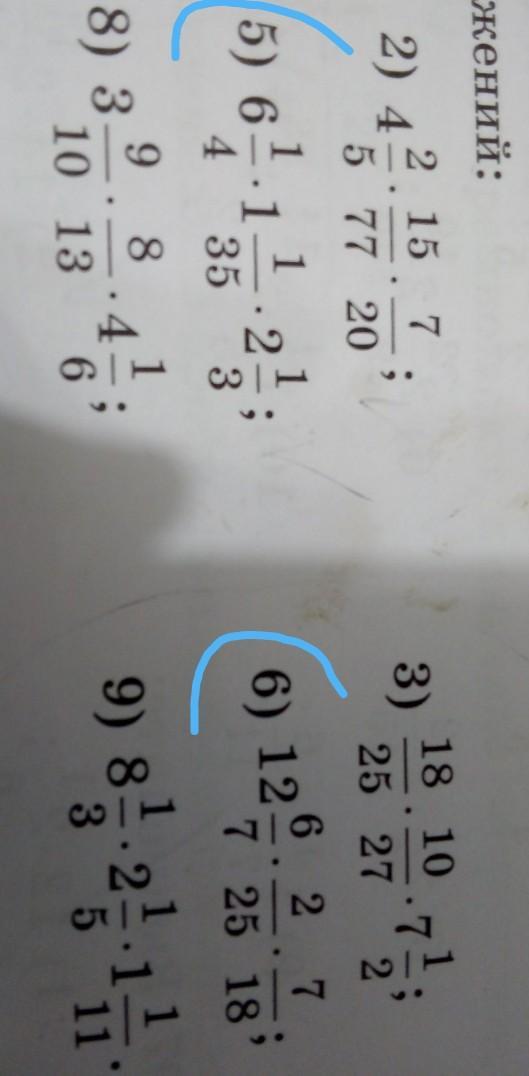 жений:
2) 4 2/5 · 15/77 · 7/20; 3) 18/25 · 10/27 · 7 1/2;
5) 6 1/4 · 1 1/35 · 2 1/3; 6) 12 6/7 · 2/25 · 7/18;
8) 3 9/10 · 8/13 · 4 1/6; 9) 8 1/3 · 2 1/5 · 1 1/11.